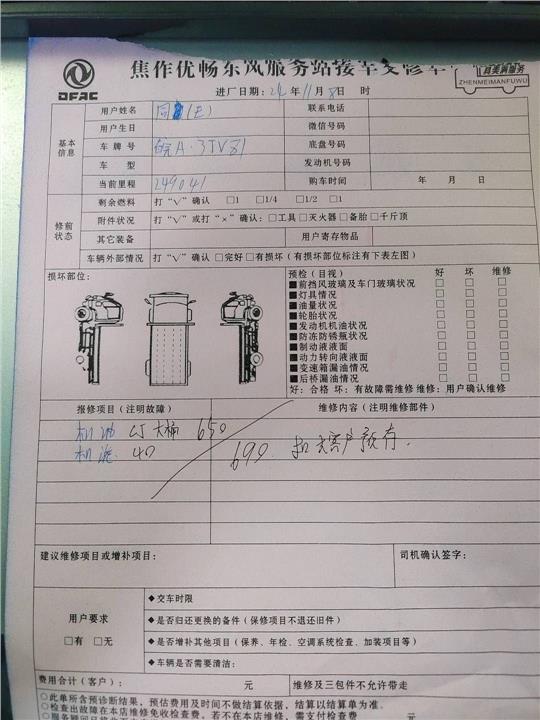 焦作优畅东风服务站接车交修单
DFAC
臻美服务
ZHENMEIFUWU
进厂日期：24 年 11 月 8 日 时
基本信息
用户姓名 (E) 联系电话
用户生日 微信号码
车牌号 皖A·3TV81 底盘号码
车型 发动机号码
当前里程 249041 购车时间 年 月 日
修前状态
剩余燃料 打“√”确认 □1 □1/4 □1/2 □1
附件状况 打“√”或打“×”确认：□工具□灭火器□备胎□千斤顶
其它装备 用户寄存物品
车辆外部情况 打“√”确认□完好□有损坏（有损坏部位标注有下表左图）
损坏部位：
预检（目视） 好 坏 维修
■前挡风玻璃及车门玻璃状况 □ □ □
■灯具情况 □ □ □
■油量状况 □ □ □
■轮胎状况 □ □ □
■发动机机油状况 □ □ □
■防冻防锈瓶状况 □ □ □
■制动液液面 □ □ □
■动力转向液液面 □ □ □
■变速箱漏油情况 □ □ □
■后桥漏油情况 □ □ □
好：合格 坏：有故障需维修 维修：用户确认维修
报修项目（注明故障） 维修内容（注明维修部件）
机油 大桶 650
机滤. 40
690. 扣大客户预存.
建议维修项目或增补项目： 司机确认签字：
用户要求
□有 □无
◆交车时限
◆是否归还更换的备件（保修项目不退还旧件）
◆是否增补其他项目（保养、年检、空调系统检查、加装项目等）
◆车辆是否需要清洁：
费用合计（客户）： 元 维修及三包件不允许带走
○此单所含预诊断结果，预估费用及时间不做结算依据，结算以结算单为准。
○检查出故障在本店维修免收检查费，若不在本店维修，需支付检查费